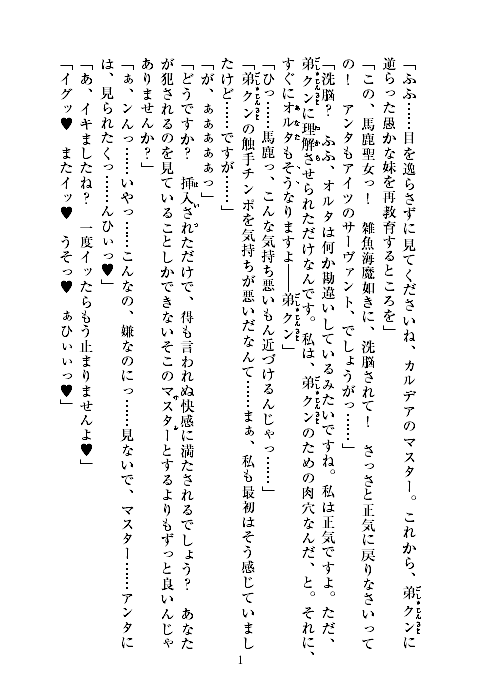 「ふふ……目を逸らさずに見てくださいね、カルデアのマスター。これから、弟クンに
逆らった愚かな妹を再教育するところを」
「この、馬鹿聖女っ！　雑魚海魔如きに、洗脳されて！　さっさと正気に戻りなさいって
の！　アンタもアイツのサーヴァント、でしょうがっ……」
「洗脳？　ふふ、オルタは何か勘違いしているみたいですね。私は正気ですよ。ただ、
弟クンに理解させられただけなんです。私は、弟クンのための肉穴なんだ、と。それに、
すぐにオルタもそうなりますよ――弟クン」
「ひっ……馬鹿っ、こんな気持ち悪いもん近づけるんじゃっ……」
「弟クンの触手チンポを気持ちが悪いだなんて……まぁ、私も最初はそう感じていまし
たけど……ですが……」
「が、ぁぁぁぁぁっ」
「どうですか？　挿入されただけで、得も言われぬ快感に満たされるでしょう？　あなた
が犯されるのを見ていることしかできないそこのマスターとするよりもずっと良いんじゃ
ありませんか？」
「ぁ、ンんっ……いやっ……こんなの、嫌なのにっ……見ないで、マスター……アンタに
は、見られたくっ……んひぃっ♥」
「あ、イキましたね？　一度イッたらもう止まりませんよ♥」
「イグッ♥　またイッ♥　うそっ♥　ぁひぃぃっ♥」
1